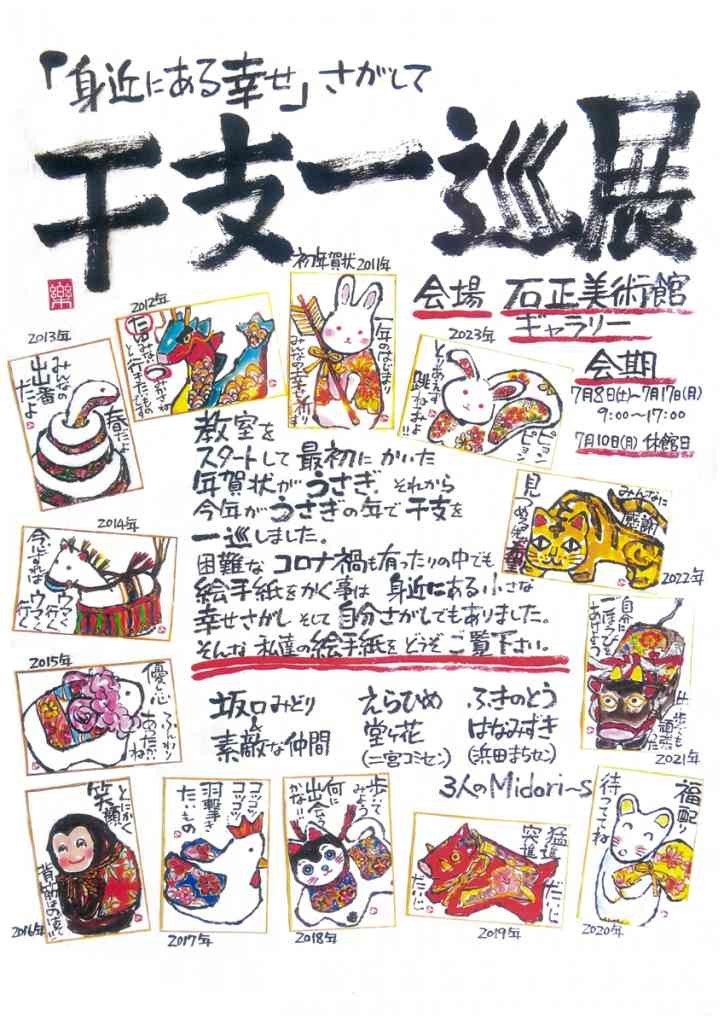 「身近にある幸せ」さがして
干支一巡展
樂
初年賀状2011年
一年のはじまり
みんなの幸せ祈ります
会場 石正美術館
ギャラリー
会期
7月8日(土)~7月17日(月)
9:00~17:00
7月10日(月) 休館日
2012年
2013年
春だよ
みんなの
出番
だよ
2023年
とりあえず
跳ねようよ
ピョン
ピョン
教室を
スタートして 最初に かいた
年賀状が うさぎ。それから
今年が うさぎの年で 干支を
一巡しました。
困難な コロナ禍も有ったりの中でも
絵手紙をかく事は 身近にある小さな
幸せさがし そして 自分さがしでもありました。
そんな 私達の絵手紙を どうぞ ご覧下さい。
2014年
ウマく行く
ウマく行く
みんなに
感謝
2022年
2015年
優しい心
ふんわり
あったかいね
自分に
ごほうびも
あげよう
2021年
坂口みどり
&
素敵な仲間
えらひめ
堂々花
(二宮コミセン)
ふきのとう
はなみずき
(浜田まちセン)
3人のMidori~s
とにかく
笑顔
2016年
コツコツ
コツコツ
羽撃き
たいもの
2017年
歩いて
みよう
何に
出会う
かな!!
2018年
猛進
突進
だいじ
だいじ
2019年
福配り
待っててね
2020年